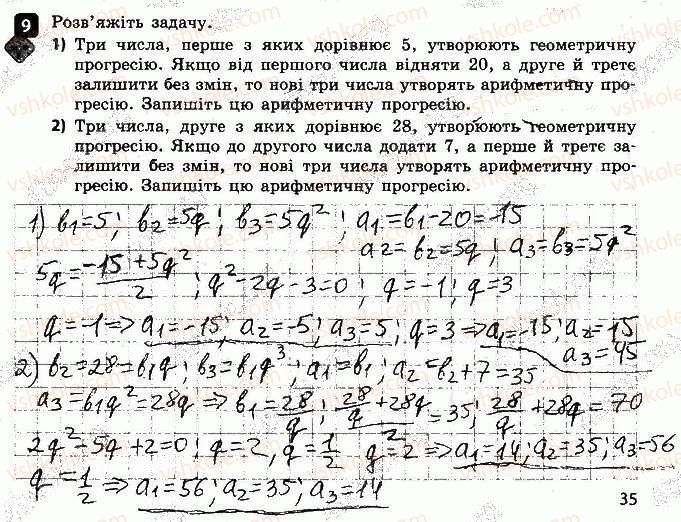 9 Розв'яжіть задачу.
1) Три числа, перше з яких дорівнює 5, утворюють геометричну
прогресію. Якщо від першого числа відняти 20, а друге й третє
залишити без змін, то нові три числа утворять арифметичну про-
гресію. Запишіть цю арифметичну прогресію.
2) Три числа, друге з яких дорівнює 28, утворюють геометричну
прогресію. Якщо до другого числа додати 7, а перше й третє за-
лишити без змін, то нові три числа утворять арифметичну про-
гресію. Запишіть цю арифметичну прогресію.
1) b₁=5; b₂=5q; b₃=5q²; a₁=b₁-20=-15
a₂=b₂=5q; a₃=b₃=5q²
5q=(-15+5q²)/2; q²-2q-3=0; q=-1; q=3
q=-1⇒a₁=-15; a₂=-5; a₃=5; q=3⇒a₁=-15; a₂=15
a₃=45
2) b₂=28=b₁q; b₃=b₁q³; a₁=b₁; a₂=b₂+7=35
a₃=b₁q²=28q⇒b₁=28/q; 28/q+28q/=35; 28/q+28q=70
2q²=5q+2=0; q=2, q=1/2 q=2⇒a₁=14; a₂=35; a₃=56
q=1/2⇒a₁=56; a₂=35; a₃=14
35
vshkole.com